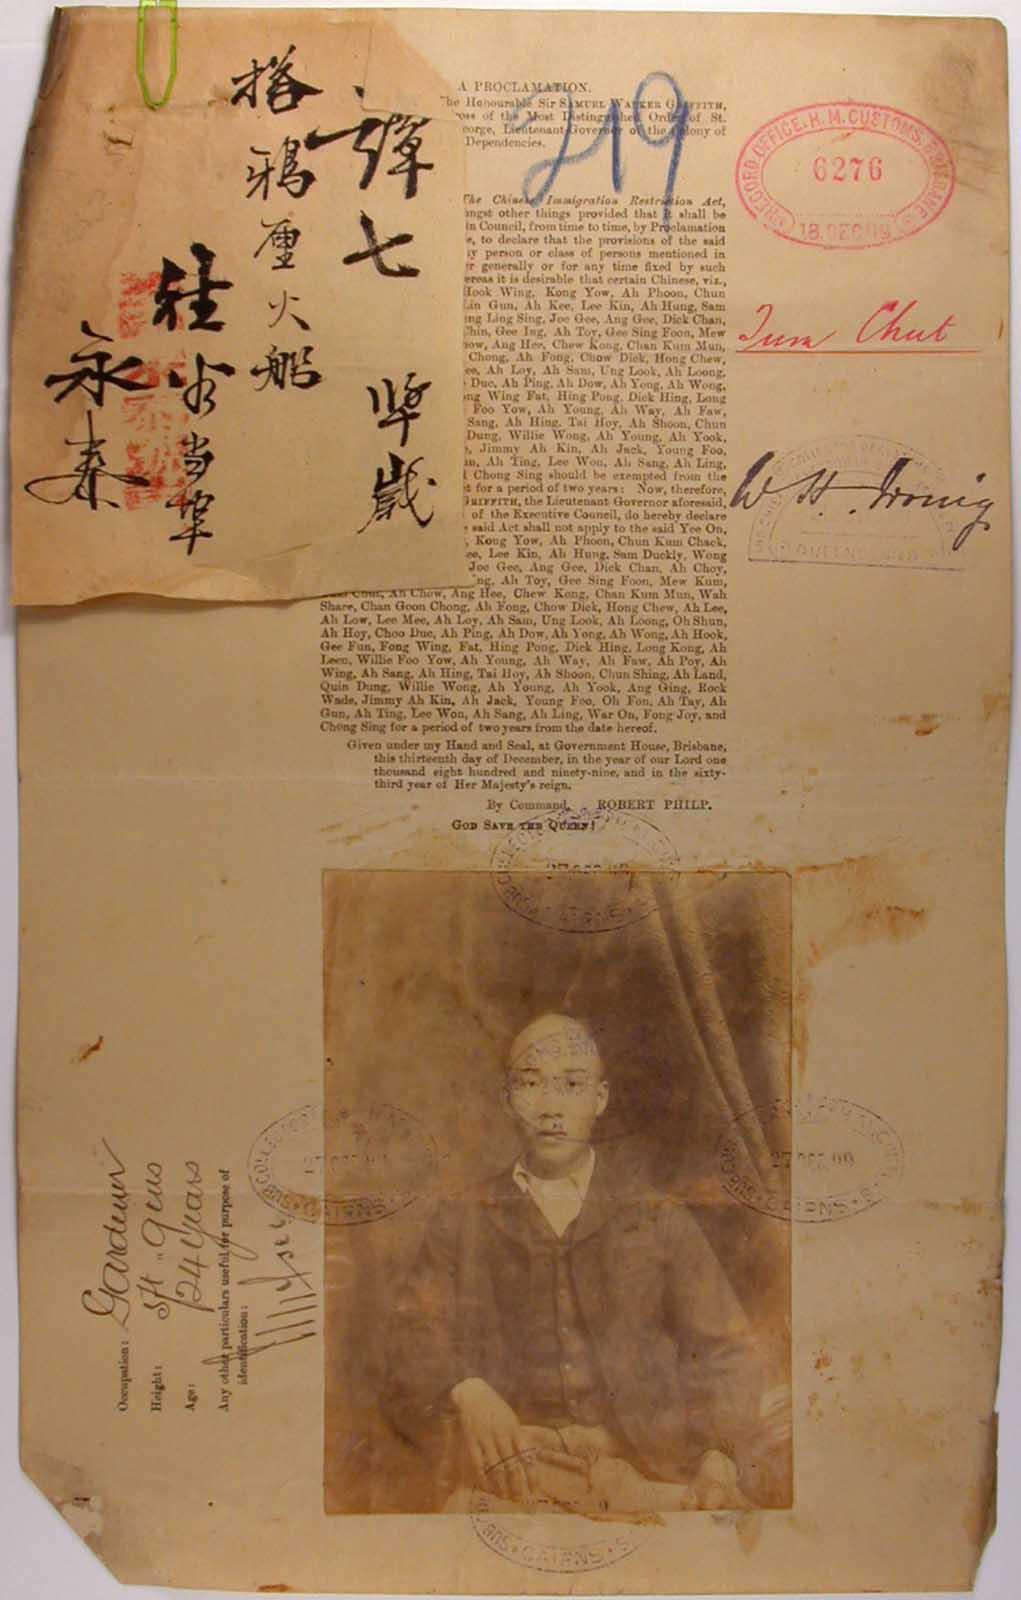 譚七 卅歲
搭鴉厘火船
往当埠
永泰
219
A PROCLAMATION.
The Honourable Sir SAMUEL WALKER GRIFFITH,
Cross of the Most Distinguished Order of St.
George, Lieutenant-Governor of the Colony of
Dependencies.
The Chinese Immigration Restriction Act,
amongst other things provided that it shall be
in Council, from time to time, by Proclamation
to declare that the provisions of the said
any person or class of persons mentioned in
generally or for any time fixed by such
whereas it is desirable that certain Chinese, viz.,
Hook Wing, Kong Yow, Ah Phoon, Chun
Gun, Ah Kee, Lee Kin, Ah Hung, Sam
Ling Sing, Joe Gee, Ang Gee, Dick Chan,
Gee Ing, Ah Toy, Gee Sing Foon, Mew
Ang Hee, Chew Kong, Chan Kum Mun,
Chong, Ah Fong, Chow Dick, Hong Chew,
Ah Loy, Ah Sam, Ung Look, Ah Loong,
Duc, Ah Ping, Ah Dow, Ah Yong, Ah Wong,
Wing Fat, Hing Pong, Dick Hing, Long
Foo Yow, Ah Young, Ah Way, Ah Faw,
Sang, Ah Hing, Tai Hoy, Ah Shoon, Chun
Dung, Willie Wong, Ah Young, Ah Yook,
Jimmy Ah Kin, Ah Jack, Young Foo,
Ah Ting, Lee Won, Ah Sang, Ah Ling,
Chong Sing should be exempted from the
for a period of two years: Now, therefore,
GRIFFITH, the Lieutenant-Governor aforesaid,
of the Executive Council, do hereby declare
said Act shall not apply to the said Yee On,
Kong Yow, Ah Phoon, Chun Kum Chack,
Lee Kin, Ah Hung, Sam Duckly, Wong
Joe Gee, Ang Gee, Dick Chan, Ah Choy,
Ah Toy, Gee Sing Foon, Mew Kum,
Ah Chow, Ang Hee, Chew Kong, Chan Kum Mun, Wah
Share, Chan Goon Chong, Ah Fong, Chow Dick, Hong Chew, Ah Lee,
Ah Low, Lee Mee, Ah Loy, Ah Sam, Ung Look, Ah Loong, Oh Shun,
Ah Hoy, Choo Duc, Ah Ping, Ah Dow, Ah Yong, Ah Wong, Ah Hook,
Gee Fun, Fong Wing, Fat, Hing Pong, Dick Hing, Long Kong, Ah
Leen, Willie Foo Yow, Ah Young, Ah Way, Ah Faw, Ah Poy, Ah
Wing, Ah Sang, Ah Hing, Tai Hoy, Ah Shoon, Chun Shing, Ah Land,
Quin Dung, Willie Wong, Ah Young, Ah Yook, Ang Ging, Rock
Wade, Jimmy Ah Kin, Ah Jack, Young Foo, Oh Fon, Ah Tay, Ah
Gun, Ah Ting, Lee Won, Ah Sang, Ah Ling, War On, Fong Joy, and
Chong Sing for a period of two years from the date hereof.
Given under my Hand and Seal, at Government House, Brisbane,
this thirteenth day of December, in the year of our Lord one
thousand eight hundred and ninety-nine, and in the sixty-
third year of Her Majesty's reign.
By Command, ROBERT PHILP.
GOD SAVE THE QUEEN!
RECORD OFFICE. H. M. CUSTOMS. BRISBANE
6276
18. DEC 99
Tum Chut
W H Irving
QUEENSLAND
27 DEC 99
CAIRNS
SUB COLLECTOR
27 DEC 99
CAIRNS
27 DEC 99
CAIRNS
CAIRNS
Occupation: Gardener
Height: 5ft 9ins
Age: 24 Years
Any other particulars useful for purpose of
identification: